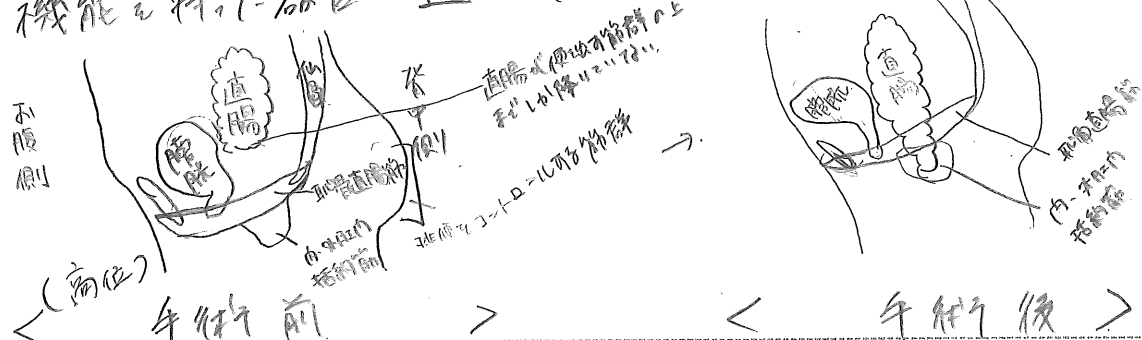 機能を持った器官
お腹側
直腸
膀胱
仙骨
背中側
直腸が便を出す筋群の上
までしか降りていない。
恥骨直腸筋
内・外肛門
括約筋
排便をコントロールする筋群
→
(高位)
<手術前>
直腸
膀胱
恥骨直腸筋
内・外肛門
括約筋
<手術後>